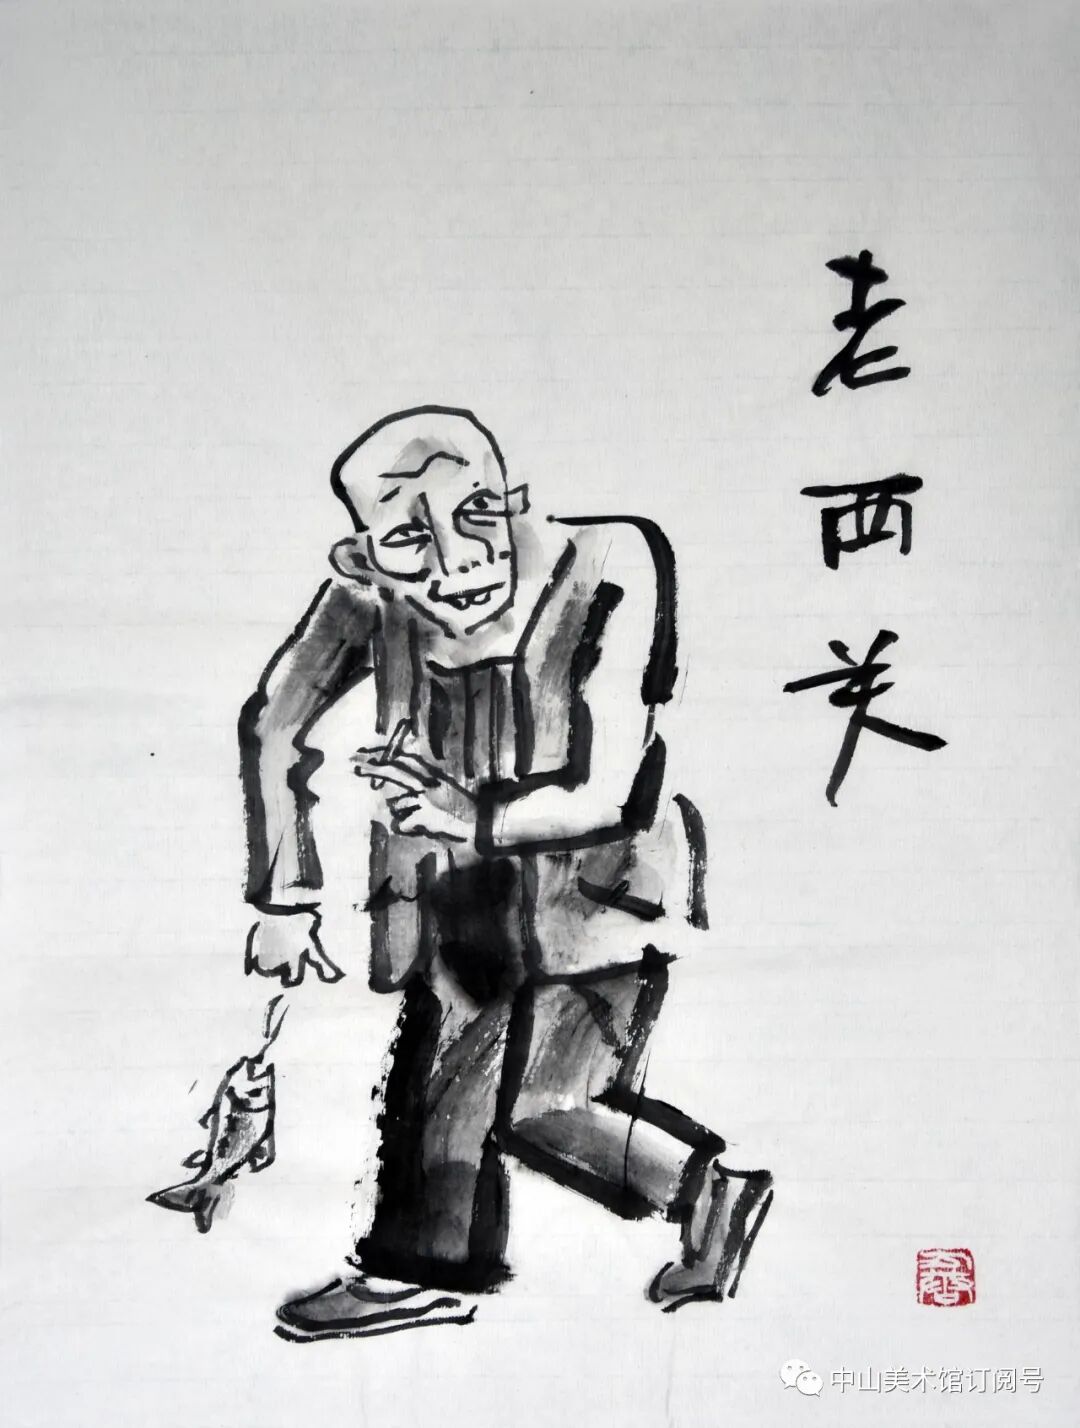 老西关
中山美术馆订阅号